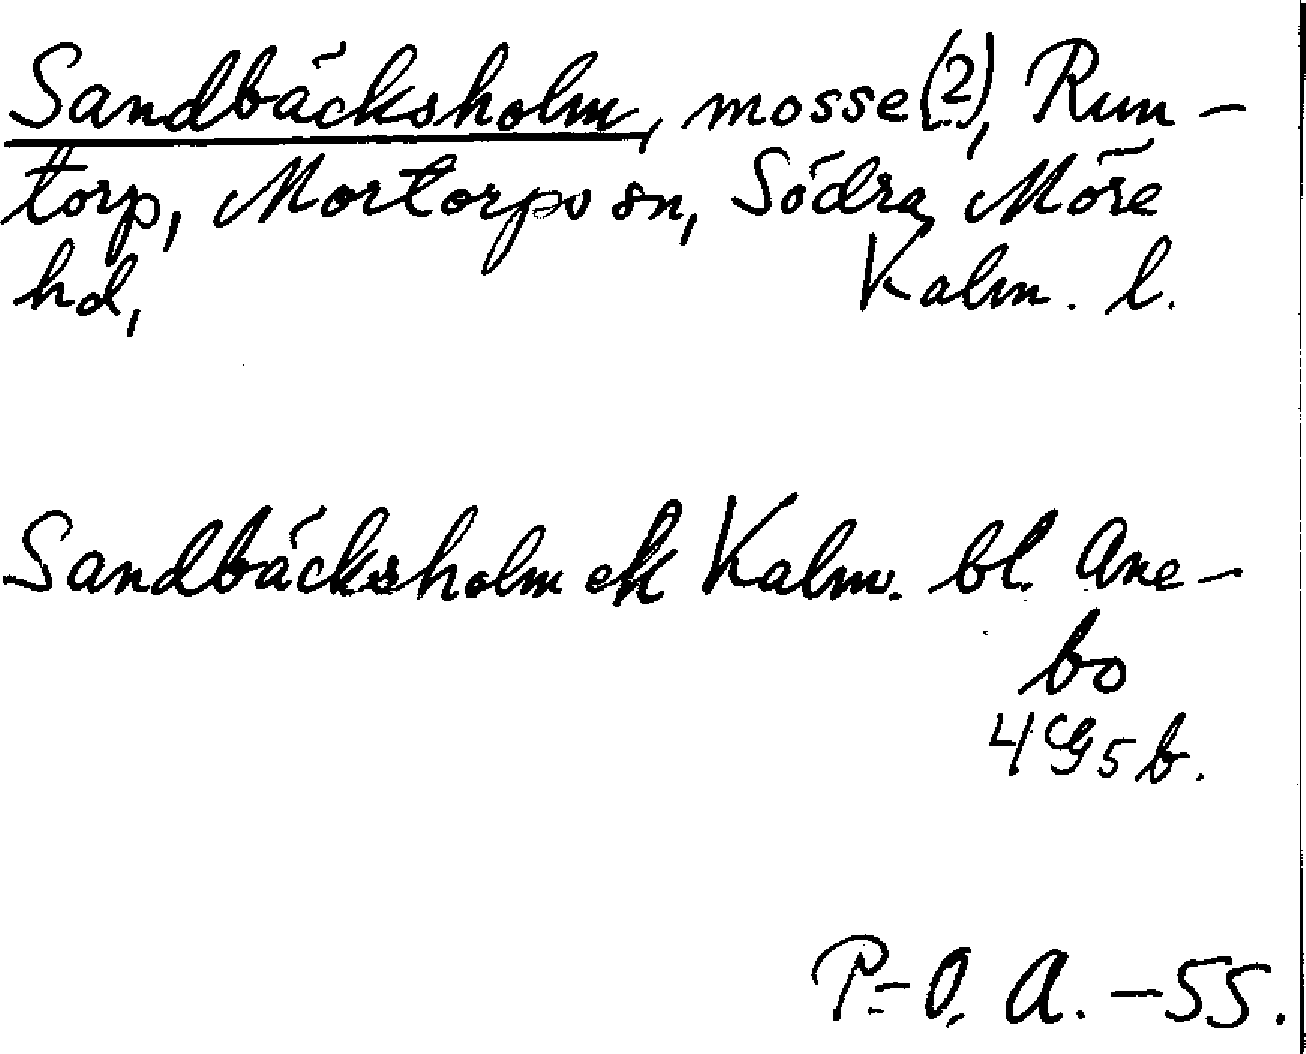 Sandbäcksholm, mosse(?), Run-
torp, Mortorps sn, Södra Möre
hd, Kalm. l.
Sandbäcksholm ek Kalm. bl. Ane-
bo
4G5b.
P-O. A. -55.